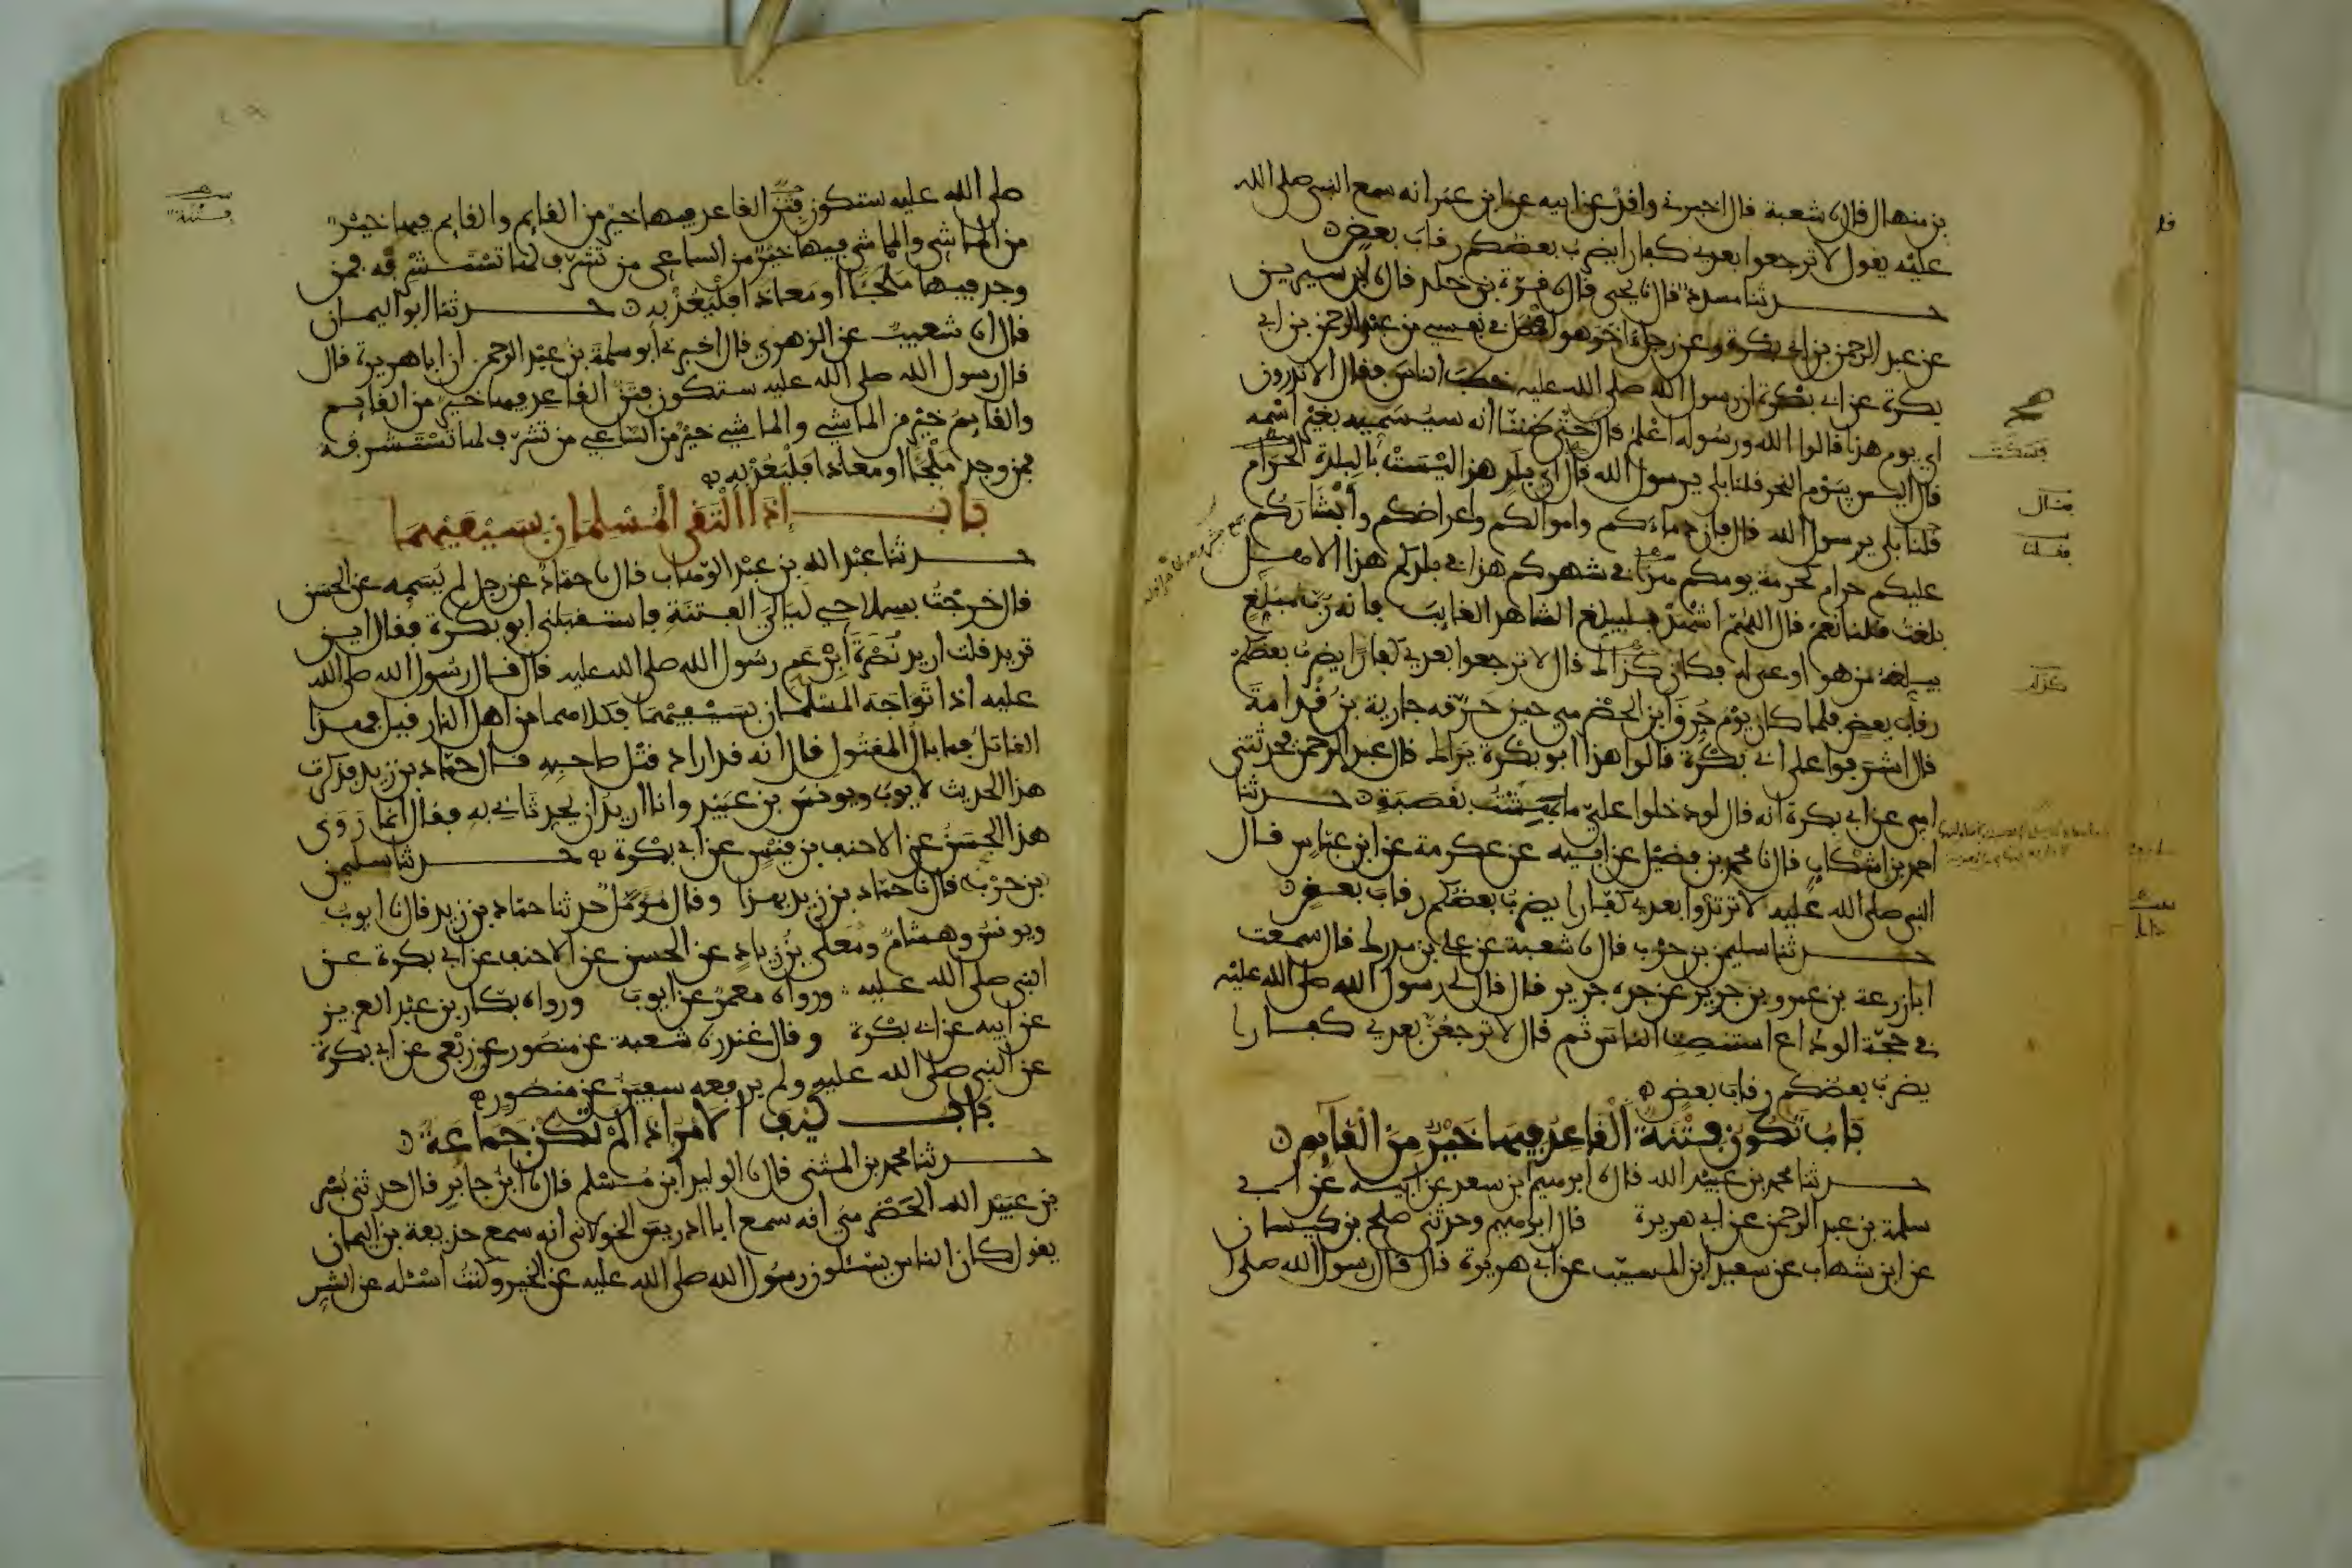 بن منهال قال نا شعبة قال اخبرني واقد عن ابيه عن ابن عمر انه سمع النبي صلى الله
عليه يقول لا ترجعوا بعدي كفارا يضرب بعضكم رقاب بعض
حدثنا مسدد قال نا يحيى قال نا قرة بن خلد قال نا ابن سيرين
عن عبد الرحمن بن ابي بكرة وعن رجل اخر هو افضل في نفسي من عبد الرحمن بن ابي
بكرة عن ابي بكرة ان رسول الله صلى الله عليه خطب الناس فقال الا تدرون
اي يوم هذا قالوا الله ورسوله اعلم قال حتى ظننا انه سيسميه بغير اسمه
قال اليس بيوم النحر قلنا بلى يرسول الله قال اي بلد هذا اليست بالبلدة الحرام
قلنا بلى يرسول الله قال فان دماءكم واموالكم واعراضكم وابشاركم
عليكم حرام كحرمة يومكم هذا في شهركم هذا في بلدكم هذا الا هل
بلغت قلنا نعم قال اللهم اشهد فليبلغ الشاهد الغايب فانه رب مبلغ
يبلغه من هو اوعى له فكان كذاك قال لا ترجعوا بعدي كفارا يضرب بعضكم
رقاب بعض فلما كان يوم حرق ابن الحضرمي حين حرقه جارية بن قدامة
قال اشرفوا على ابي بكرة قالوا هذا ابو بكرة يراك قال عبد الرحمن فحدثتني
امي عن ابي بكرة انه قال لو دخلوا علي ما بهشت بقصبة حدثنا
احمد بن اشكاب قال نا محمد بن فضيل عن ابيه عن عكرمة عن ابن عباس قال
النبي صلى الله عليه لا ترتدوا بعدي كفارا يضرب بعضكم رقاب بعض
حدثنا سليمن بن حرب قال نا شعبة عن علي بن مدرك قال سمعت
ابا زرعة بن عمرو بن جرير عن جده جرير قال قال لي رسول الله صلى الله عليه
في حجة الوداع استنصت الناس ثم قال لا ترجعن بعدي كفارا
يضرب بعضكم رقاب بعض
باب تكون فتنة القاعد فيها خير من القايم
حدثنا محمد بن عبيد الله قال نا ابرهيم ابن سعد عن ابيه عن ابي
سلمة بن عبد الرحمن عن ابي هريرة قال ابرهيم وحدثني صلح بن كيسان
عن ابن شهاب عن سعيد ابن المسيب عن ابي هريرة قال قال رسول الله صلى ا
قلا
فسكت
فقال
فقلنا
كذلك
صلى الله عليه ستكون فتن القاعد فيها خير من القايم والقايم فيها خير
من الماشي والماشي فيها خير من الساعي من تشرف لها تستشرفه فمن
وجد فيها ملجأ او معاذا فليعذ به حدثنا ابو اليمان
قال نا شعيب عن الزهري قال اخبرني ابو سلمة بن عبد الرحمن ان ابا هريرة قال
قال رسول الله صلى الله عليه ستكون فتن القاعد فيها خير من القايم
والقايم خير من الماشي والماشي خير من الساعي من تشرف لها تستشرفه
فمن وجد ملجأ او معاذا فليعذ به
باب إذا التقى المسلمان بسيفيهما
حدثنا عبد الله بن عبد الوهاب قال نا حماد عن رجل لم يسمه عن الحسن
قال خرجت بسلاحي ليالي الفتنة فاستقبلني ابو بكرة فقال اين
تريد قلت اريد نصرة ابن عم رسول الله صلى الله عليه قال قال رسول الله صلى الله
عليه اذا تواجه المسلمان بسيفيهما فكلاهما من اهل النار قيل فهذا
القاتل فما بال المقتول قال انه قد اراد قتل صاحبه قال حماد بن زيد فذكرت
هذا الحديث لايوب ويونس بن عبيد وانا اريد ان يحدثاني به فقال انما روى
هذا الحسن عن الاحنف بن قيس عن ابي بكرة حدثنا سليمن
بن حرب قال نا حماد بن زيد بهذا وقال مؤمل حدثنا حماد بن زيد قال نا ايوب
ويونس وهشام ومعلى بن زياد عن الحسن عن الاحنف عن ابي بكرة عن
النبي صلى الله عليه ورواه معمر عن ايوب ورواه بكار بن عبد العزيز
عن ابيه عن ابي بكرة وقال غندر نا شعبة عن منصور عن ربعي عن ابي بكرة
عن النبي صلى الله عليه ولم يرفعه سفين عن منصور
باب كيف الامر اذا لم تكن جماعة
حدثنا محمد بن المثنى قال نا الوليد ابن مسلم قال نا ابن جابر قال حدثني بسر
بن عبيد الله الحضرمي انه سمع ابا ادريس الخولاني انه سمع حذيفة بن اليمان
يقول كان الناس يسئلون رسول الله صلى الله عليه عن الخير وكنت اسئله عن الشر
فتنة